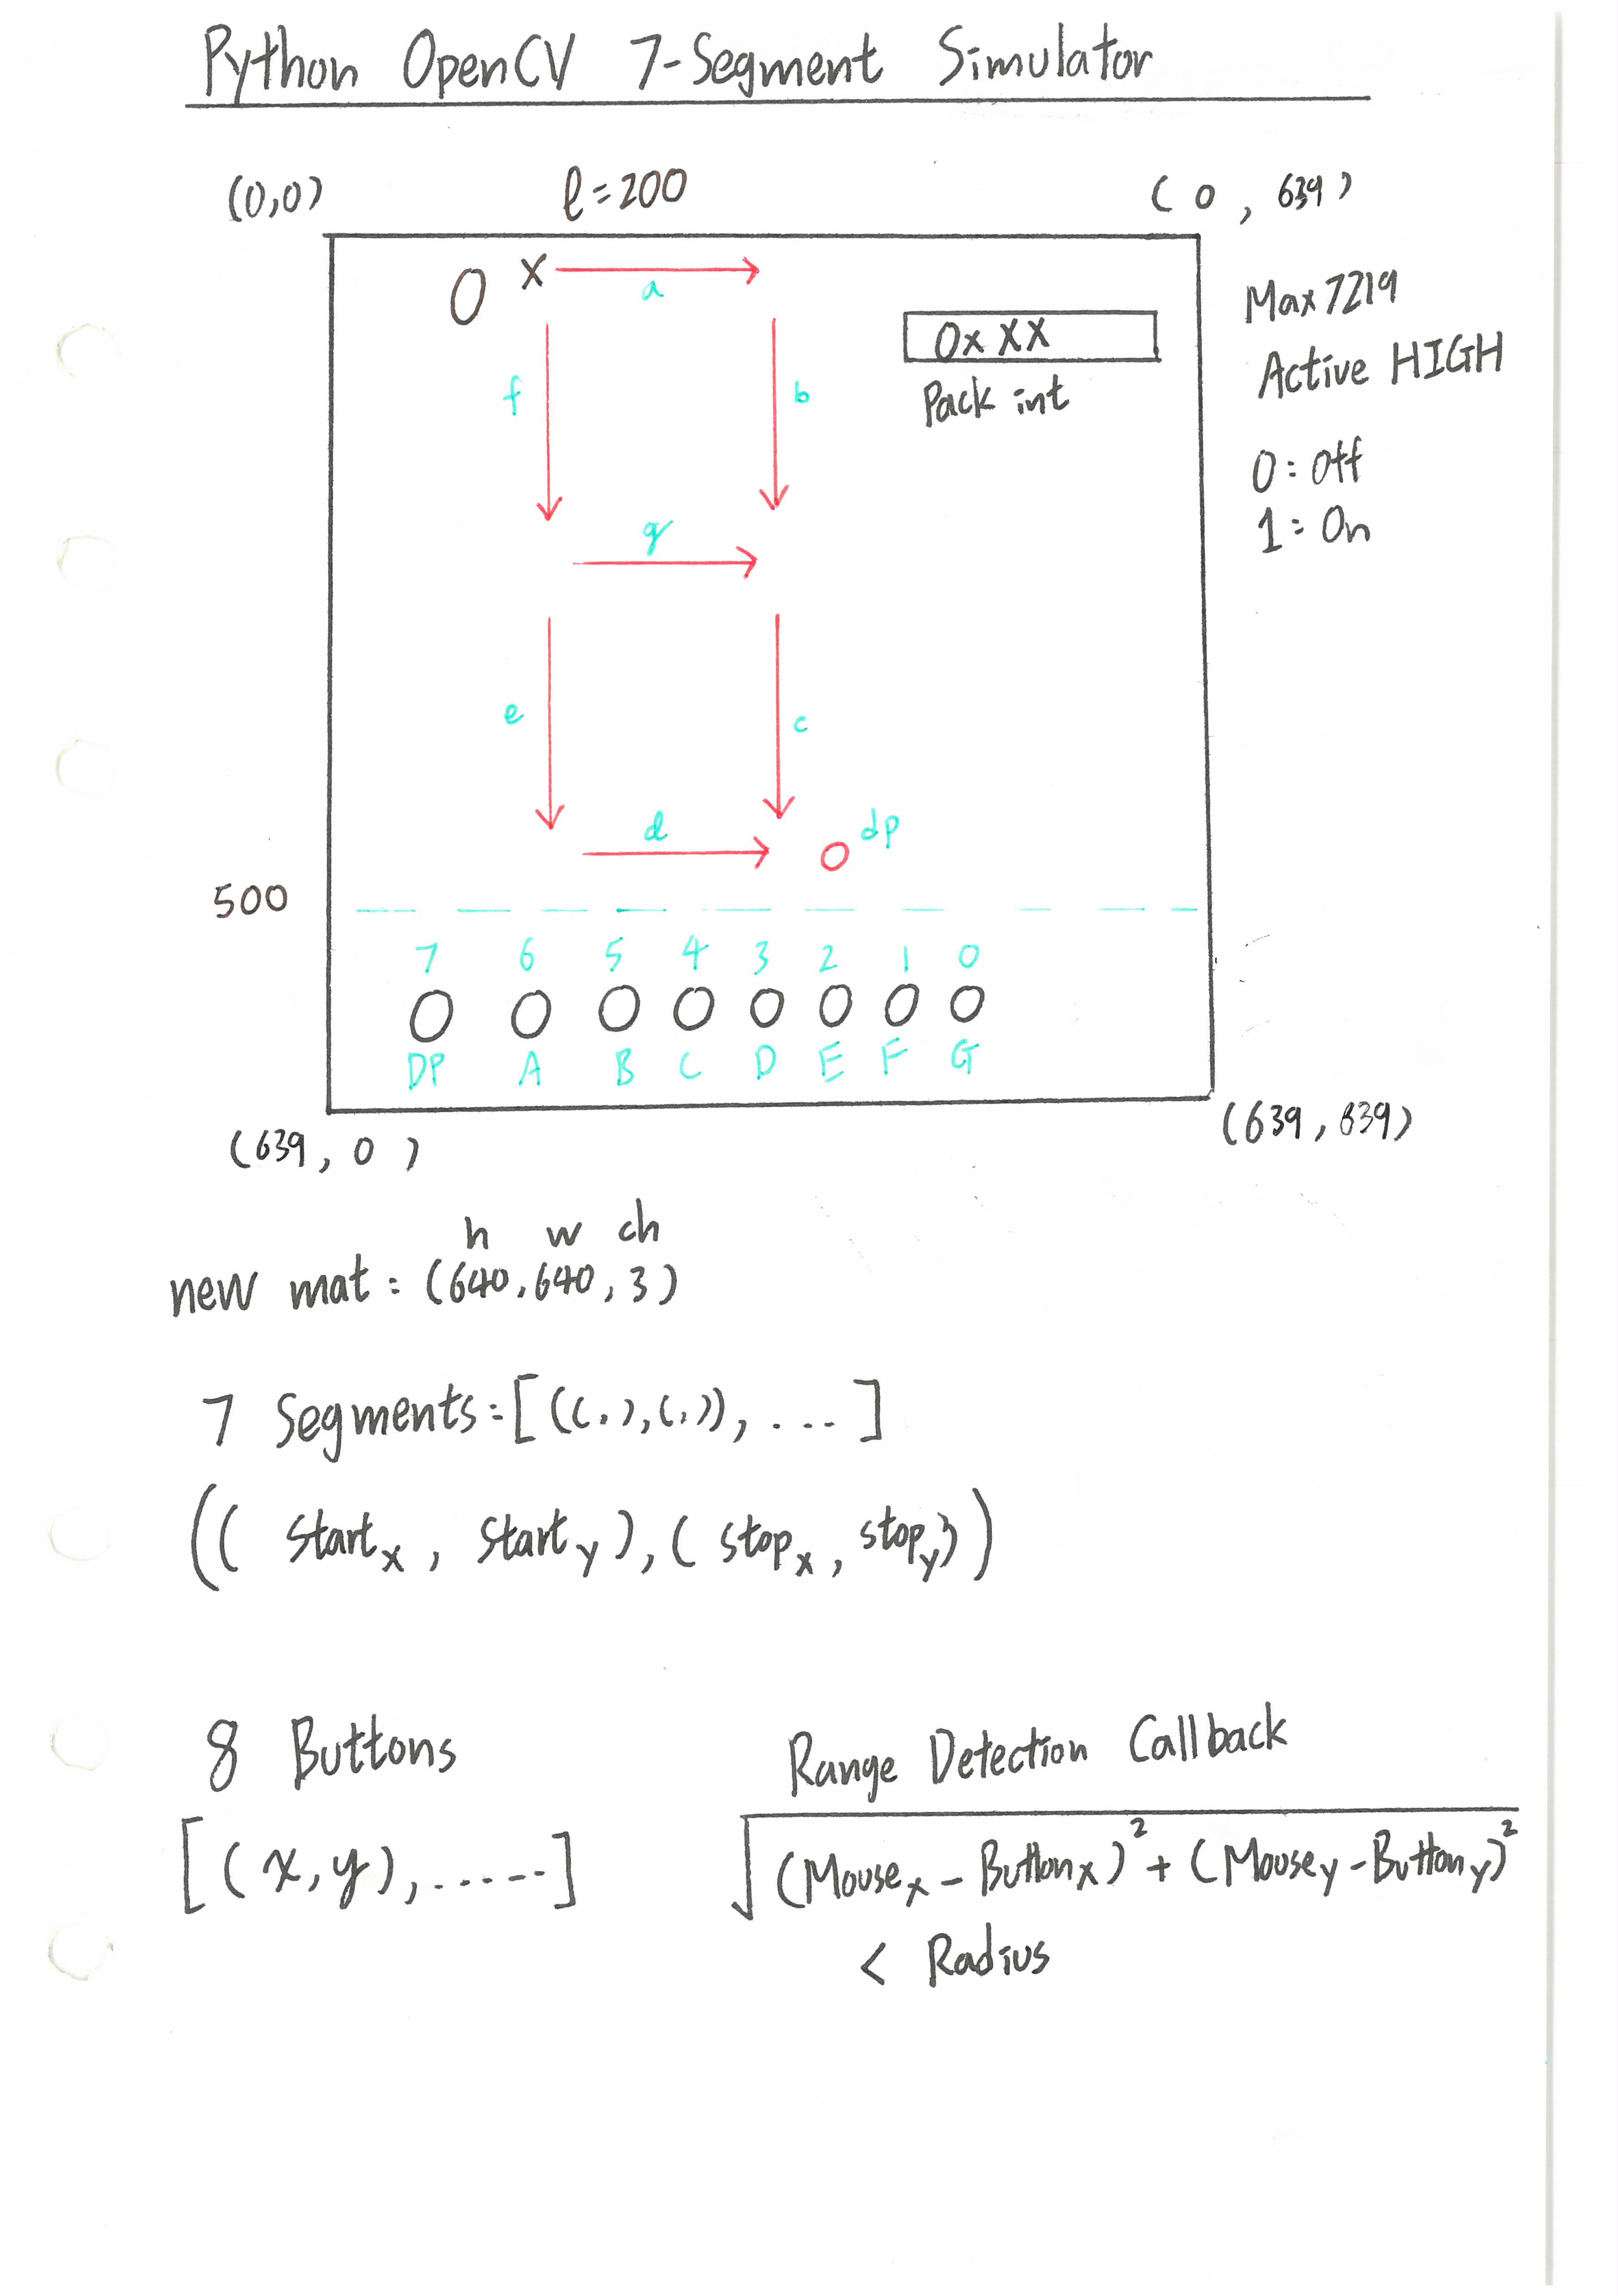 Python OpenCV 7-Segment Simulator
(0,0) l=200 (0, 639)
O x
a
0x XX
Pack int
Max7219
Active HIGH
0: Off
1: On
f b
g
e c
d dp
500
7 6 5 4 3 2 1 0
DP A B C D E F G
(639, 0) (639, 639)
h w ch
new mat: (640, 640, 3)
7 Segments = [((,),(,)), ...]
((Startx, Starty), (stopx, stopy))
8 Buttons
[(x,y), .....]
Range Detection Callback
√(Mousex - Buttonx)² + (Mousey - Buttony)²
< Radius